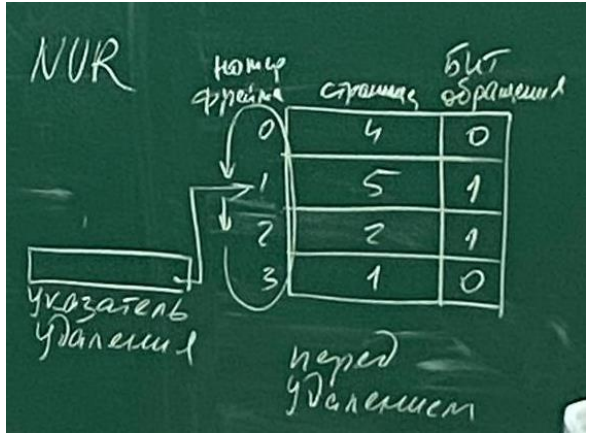 NUR
номер
фрейма
страница
БИТ
обращения
0 4 0
1 5 1
2 2 1
3 1 0
указатель
удаления
перед
удалением